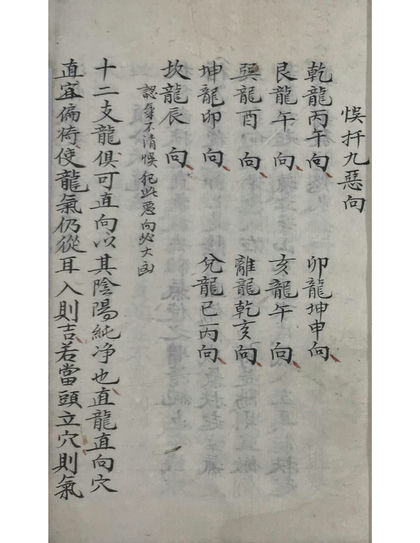 悞扦九惡向
乾龍丙午向 卯龍坤申向
艮龍午向 亥龍午向
巽龍酉向 離龍乾亥向
坤龍卯向 兌龍巳丙向
坎龍辰向
認氣不清悞犯此惡向必大凶
十二支龍俱可直向以其陰陽純净也直龍直向穴
直宜偏椅使龍氣仍從耳入則吉若當頭立穴則氣